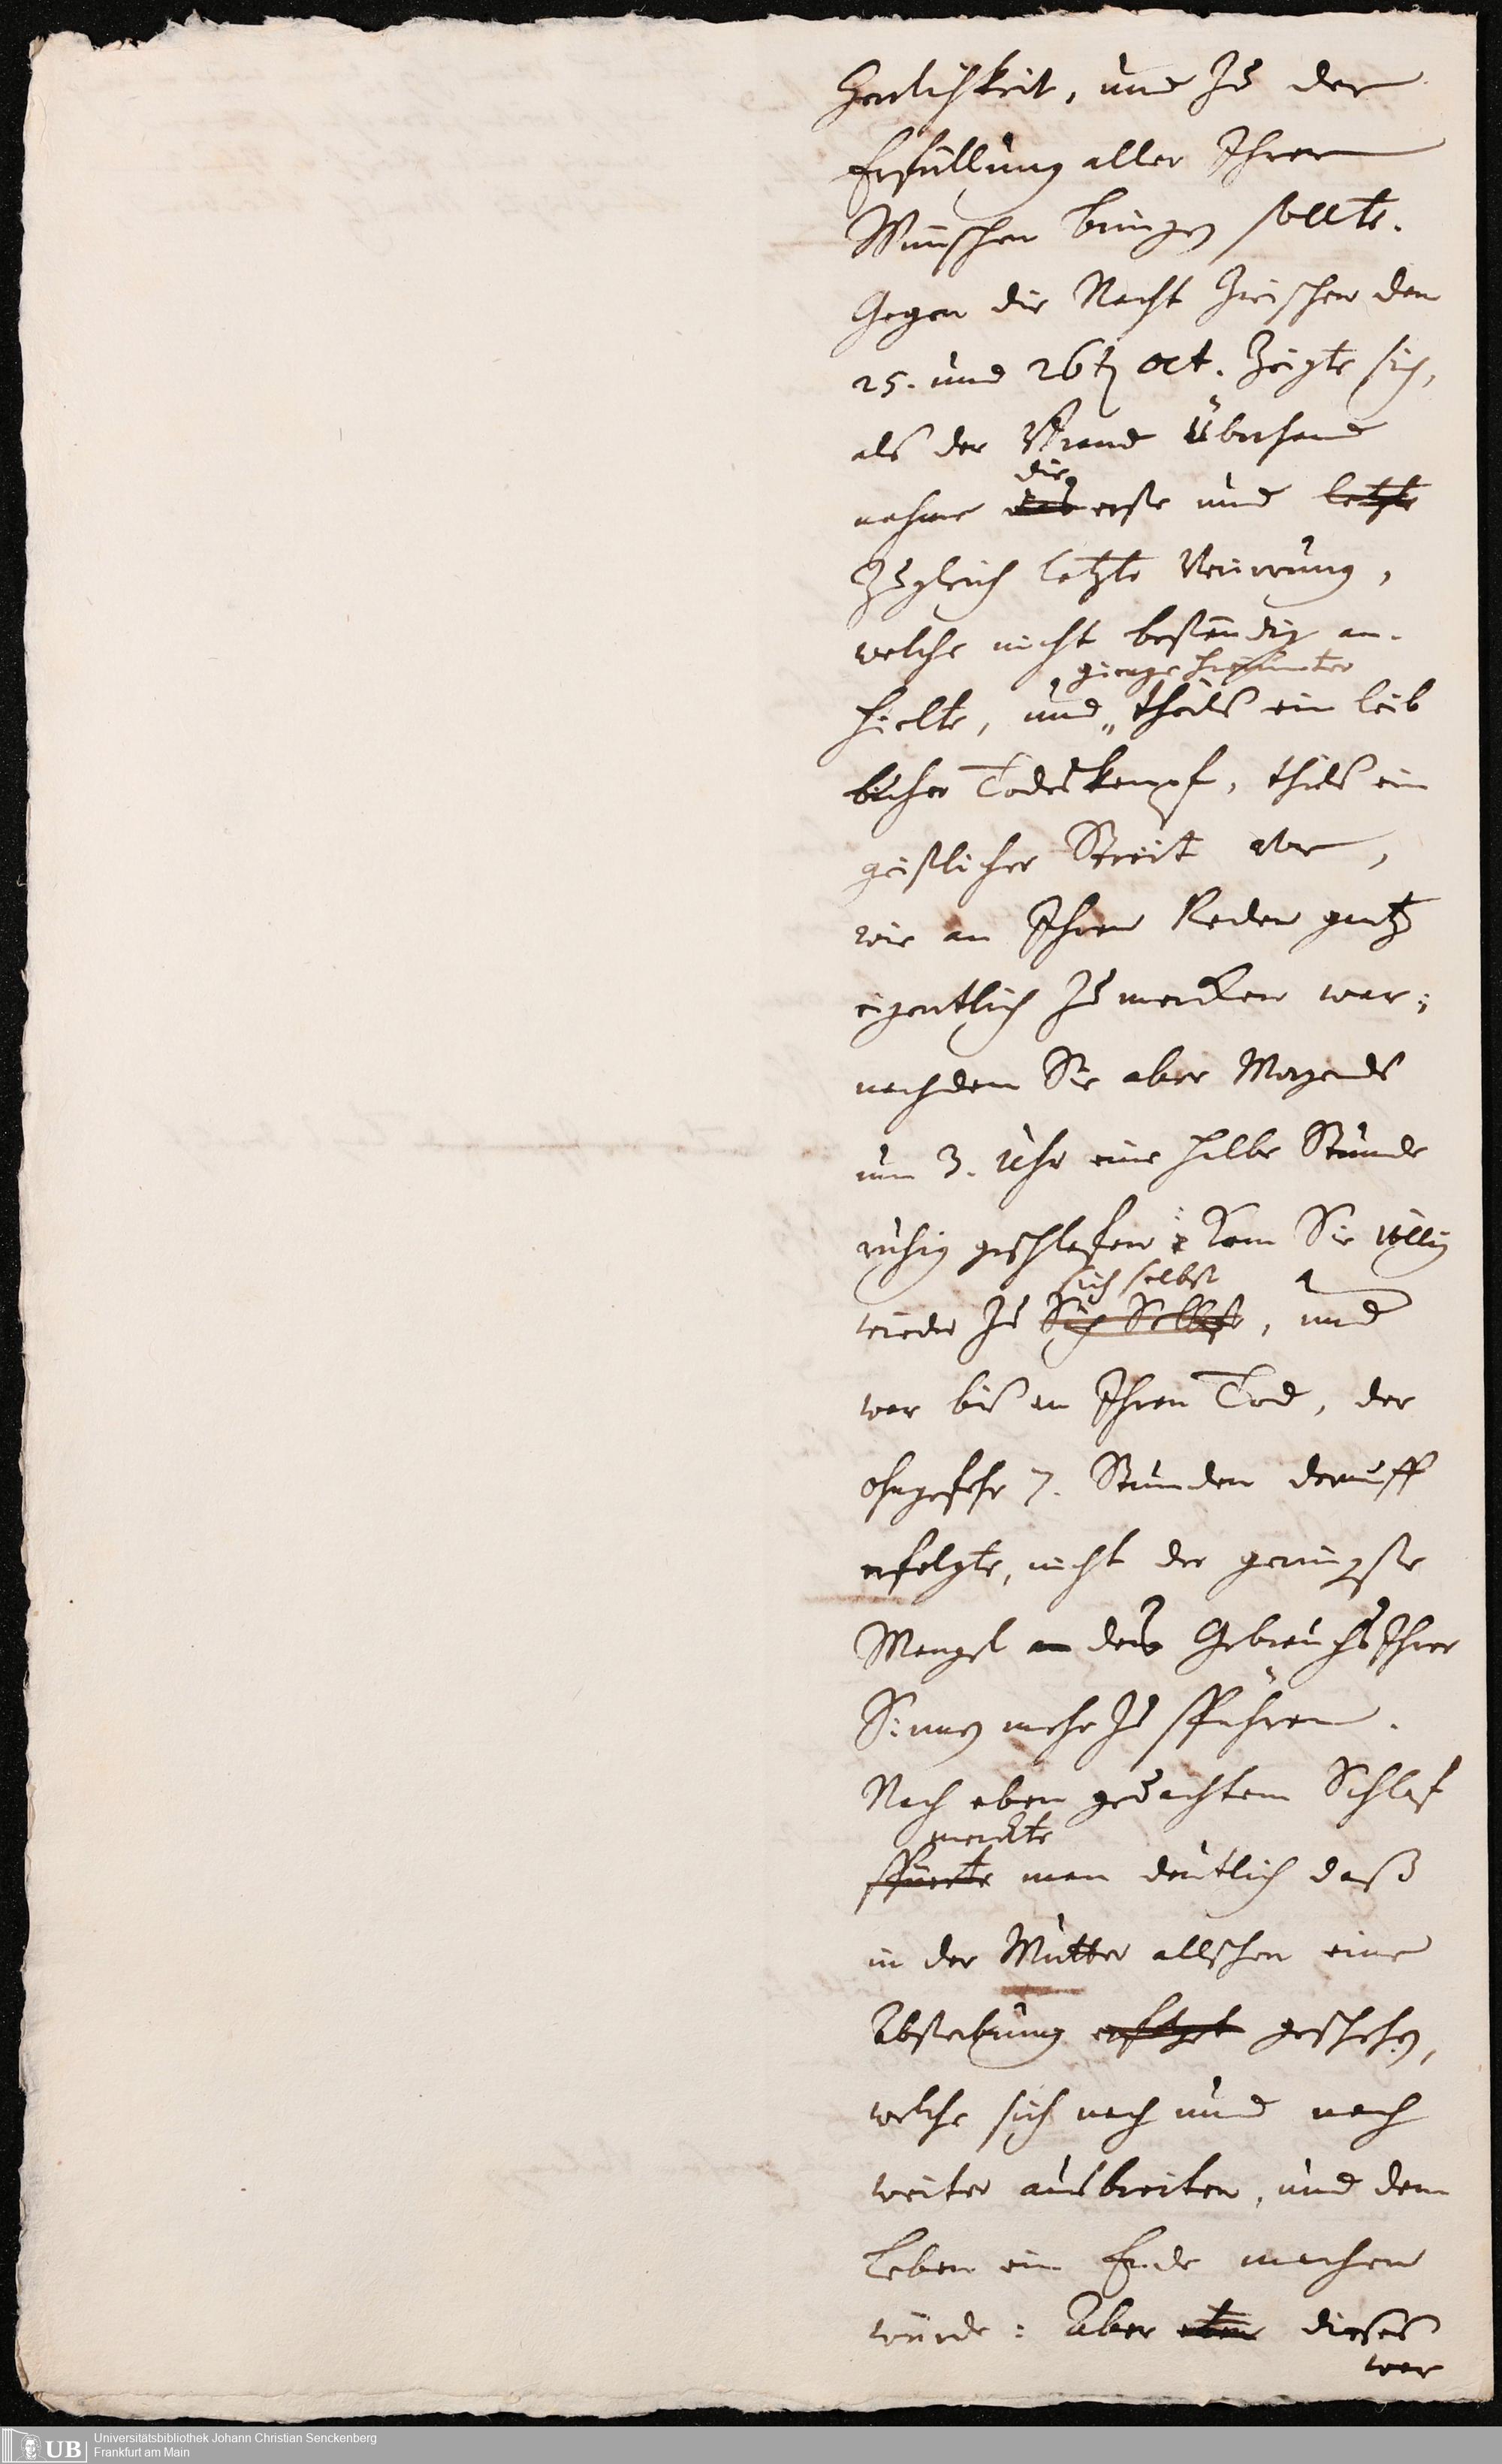 Herrlichkeit, und zu der
Erfüllung aller Ihrer
Wünschen bringen sollte.
Gegen die Nacht zwischen den
25. und 26ten Oct. zeigte sich,
als der Brand überhand
die
nahme das erste und letzte
zugleich letzte Verirrung,
welche nicht beständig an-
gienge hierunter
hielte, und theils ein leib
licher Todeskampf, theils ein
geistlicher Streit vor,
wie an Ihren Reden gantz
eigentlich zu mercken war;
nachdem Sie aber Morgends
um 3. Uhr eine halbe Stunde
ruhig geschlafen kam Sie völlig
sich selbst
wieder zu Sich Selbst, und
war bis an Ihren Tod, der
ohngefehr 7. Stunden darauff
erfolgte, nicht der geringste
Mangel an des Gebrauchs Ihrer
Sinnen mehr zu spühren.
Nach eben gedachtem Schlaf
merckte
spürte man deutlich daß
in der Mutter allschon eine
Absterbung erfolgt geschehen,
welche sich nach und nach
weiter ausbreiten, und dem
Leben ein Ende machen
würde: Aber dieses
war
Universitätsbibliothek Johann Christian Senckenberg
UB Frankfurt am Main